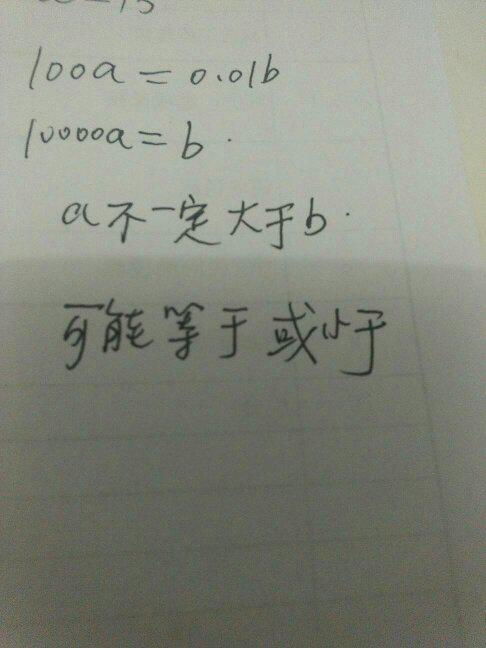 100a=0.01b
10000a=b.
a不一定大于b.
可能等于或小于